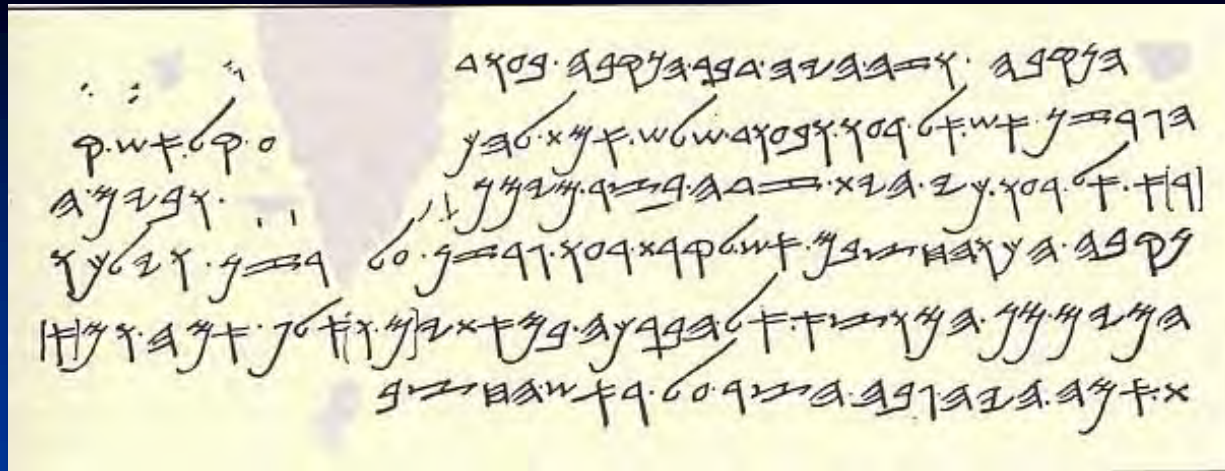 𐤄𐤍𐤒𐤁𐤄 . 𐤅𐤆𐤄 . 𐤄𐤉𐤄 . 𐤃𐤁𐤓 . 𐤄𐤍𐤒𐤁𐤄 . 𐤁𐤏𐤅𐤃
𐤄𐤂𐤓𐤆𐤍 . 𐤀𐤔 . 𐤀𐤋 . 𐤓𐤏𐤅 . 𐤅𐤁𐤏𐤅𐤃 . 𐤔𐤋𐤔 . 𐤀𐤌𐤕 . 𐤋𐤄𐤍 𐤏 . 𐤒𐤋 . 𐤀𐤔 . 𐤒
[𐤓]𐤀 . 𐤀𐤋 . 𐤓𐤏𐤅 . 𐤊𐤉 . 𐤄𐤉𐤕 . 𐤆𐤃𐤄 . 𐤁𐤑𐤓 . 𐤌𐤉𐤌𐤍 . 𐤅𐤁𐤉𐤌 . 𐤄
𐤍𐤒𐤁𐤄 . 𐤄𐤊𐤅 . 𐤄𐤇𐤑𐤁𐤌 . 𐤀𐤔 . 𐤋𐤒𐤓𐤕 . 𐤓𐤏𐤅 . 𐤂𐤓𐤆𐤍 . 𐤏𐤋 𐤓𐤆𐤍 . 𐤅𐤉𐤋𐤊𐤅
𐤄𐤌𐤉𐤌 . 𐤌𐤍 . 𐤄𐤌𐤅𐤑𐤀 . 𐤀𐤋 . 𐤄𐤁𐤓𐤊𐤄 . 𐤁𐤌𐤀𐤕𐤉[𐤌 . 𐤅]𐤀𐤋𐤐 . 𐤀𐤌𐤄 . 𐤅𐤌[𐤀]
𐤕 . 𐤀𐤌𐤄 . 𐤄𐤉𐤄 . 𐤂𐤁𐤄 . 𐤄𐤑𐤓 . 𐤏𐤋 . 𐤓𐤀𐤔 . 𐤄𐤇𐤑𐤁